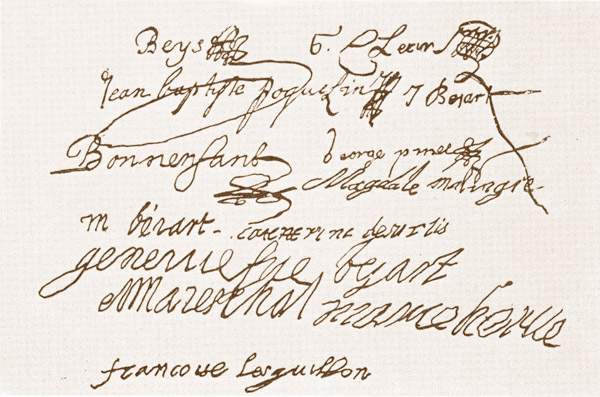 Beys G. Clerin
Jean baptiste poquelin J Bejart
Bonnenfant George pinel
Magdale malingre
m béiart catherine desurlis
geneuiefue bejart
A Mareschal marie herue
francoise lesguillon